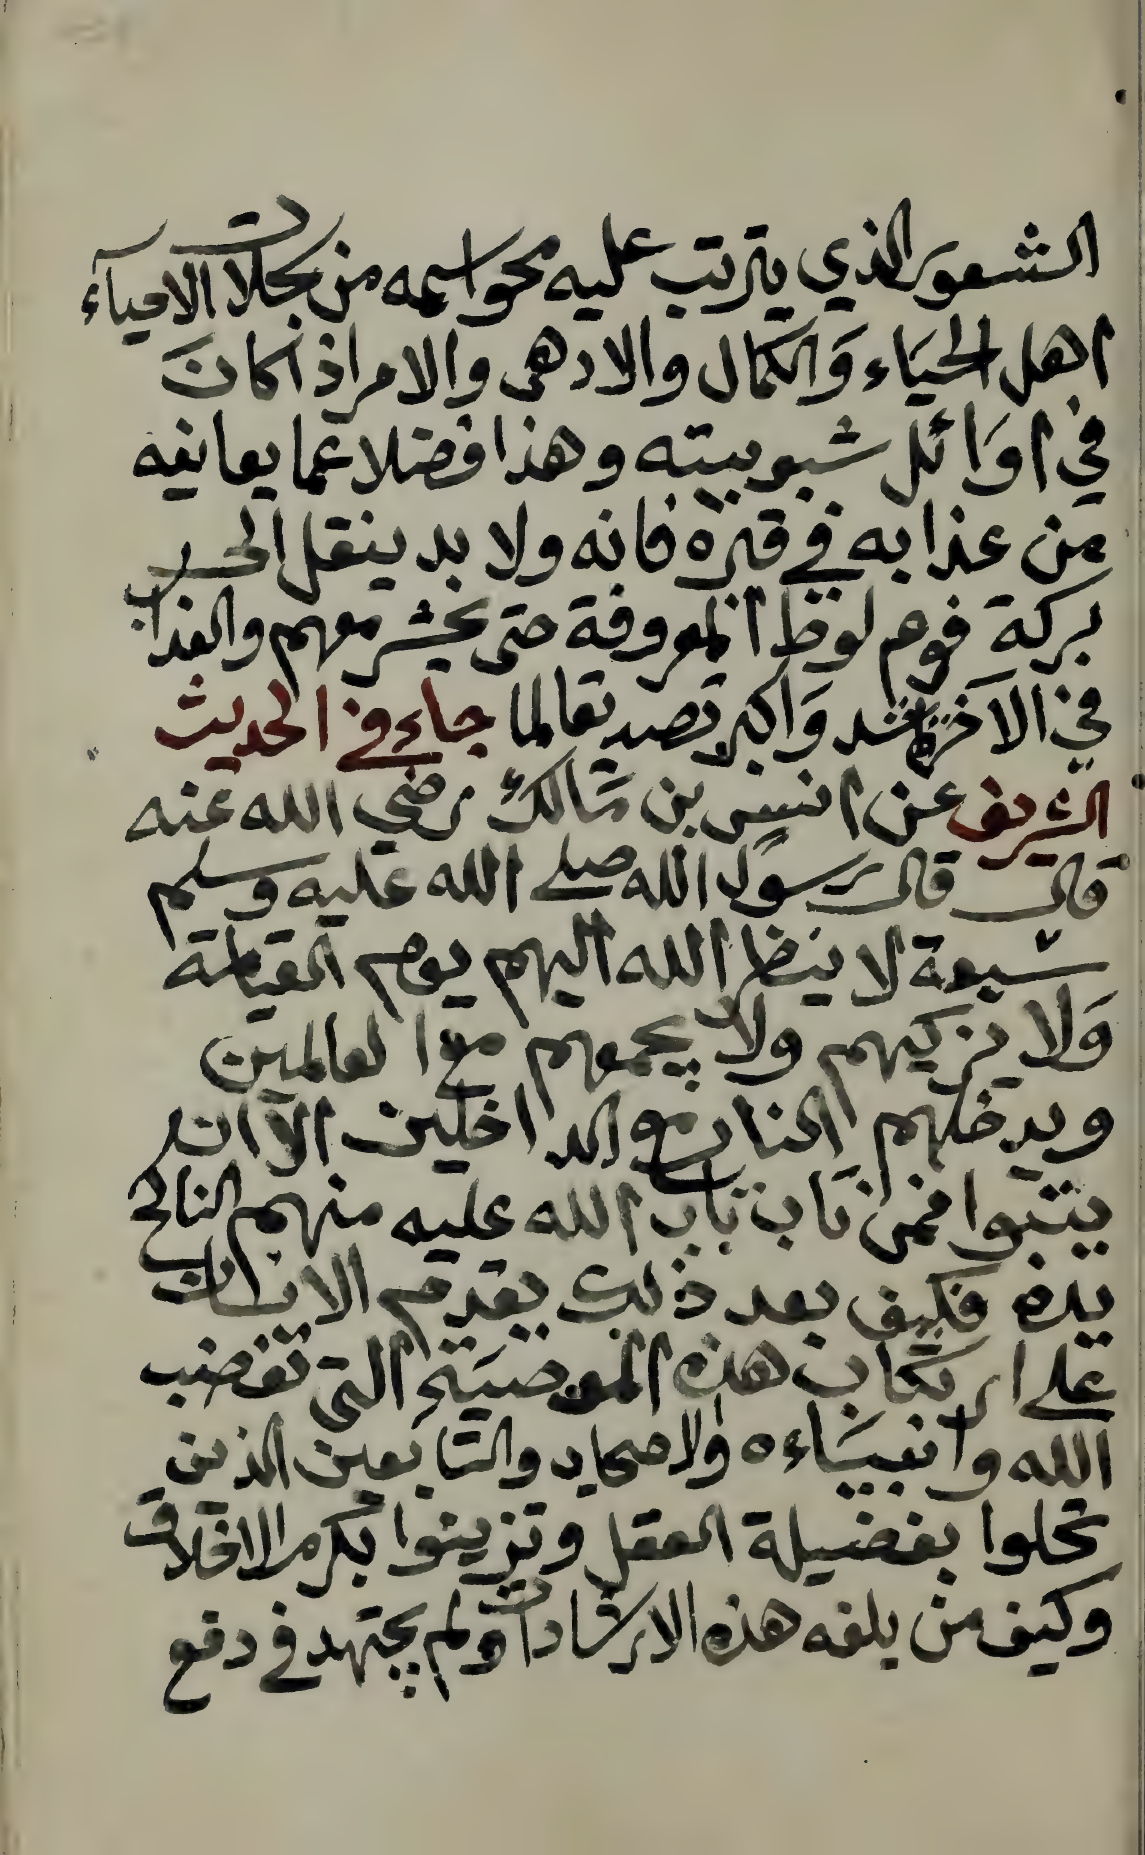 الشعور الذي يترتب عليه محو اسمه من سجلات الاحياء
اهل الحيَاء وَالكمال والادهى والامر اذا كانَ
في اوَائل شبوبيته وهذا فضلا عما يعانيه
من عذابه في قبره فانه ولا بد ينقل الى
بركة قوم لوط المعروفة حتى يحشر معهم والعذاب
في الآخرة اشد وَاكبر تصديقا لما جاء في الحديث
الشريف عن انس بن مَالك رضي الله عنه
قال قال رسول الله صلى الله عليه وسلم
سبعة لا ينظر الله اليهم يوم القيامة
وَلا يزكيهم ولا يجمعهم مع العالمين
ويدخلهم النار مع الداخلين الا ان
يتوبوا فمن تاب تاب الله عليه منهم الناكح
يده فكيف بعد ذلك يقدم الانسان
على ارتكاب هذه المعصيَة التي تغضب
الله وانبيَاءه والاصحاب والتابعين الذين
تحلوا بفضيلة العقل وتزينوا بكرم الاخلاق
وكيف من بلغه هذه الارشادات ولم يجتهد في دفع